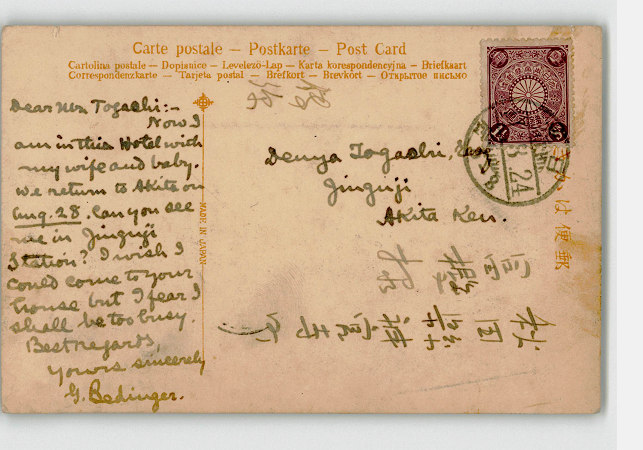 Carte postale — Postkarte — Post Card
Cartolina postale — Dopisnice — Levelező-Lap — Karta korespondencyjna — Briefkaart
Correspondenzkarte — Tarjeta postal — Brefkort — Brevkort — Открытое письмо
Dear Mr. Togashi:-
Now I
am in this Hotel with
my wife and baby.
We return to Akita on
Aug. 28. Can you see
me in Jinguji
Station? I wish I
could come to your
house but I fear I
shall be too busy.
Best regards,
Yours sincerely
G. Bedinger.
MADE IN JAPAN
Denya Togashi, Esq
Jinguji
Akita Ken.
1½
24
きかは便郵
秋田